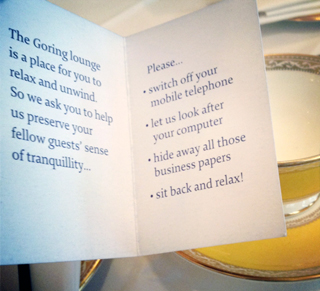 The Goring lounge
is a place for you to
relax and unwind.
So we ask you to help
us preserve your
fellow guests' sense
of tranquillity...
Please...
• switch off your
mobile telephone
• let us look after
your computer
• hide away all those
business papers
• sit back and relax!